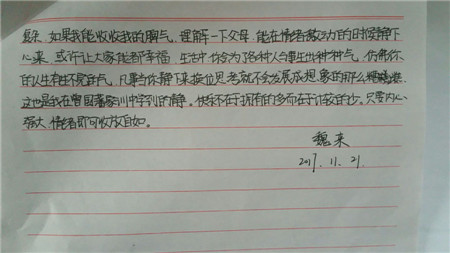 后来，如果我能收收我的脾气，理解一下父母，能在情绪激动的时候静下
心来，或许让大家能都幸福。生活中你会为了各种人合事生出种种气，仿佛你
的人生有生不完的气，凡事当你静下来换位思考就不会发展成想象的那么糟糕难堪，
这也是我在曾国藩家训中学到的静。快乐不在于拥有的多而在于计较的少。只要内心
强大，情绪即可收放自如。
魏来
2017.11.21.